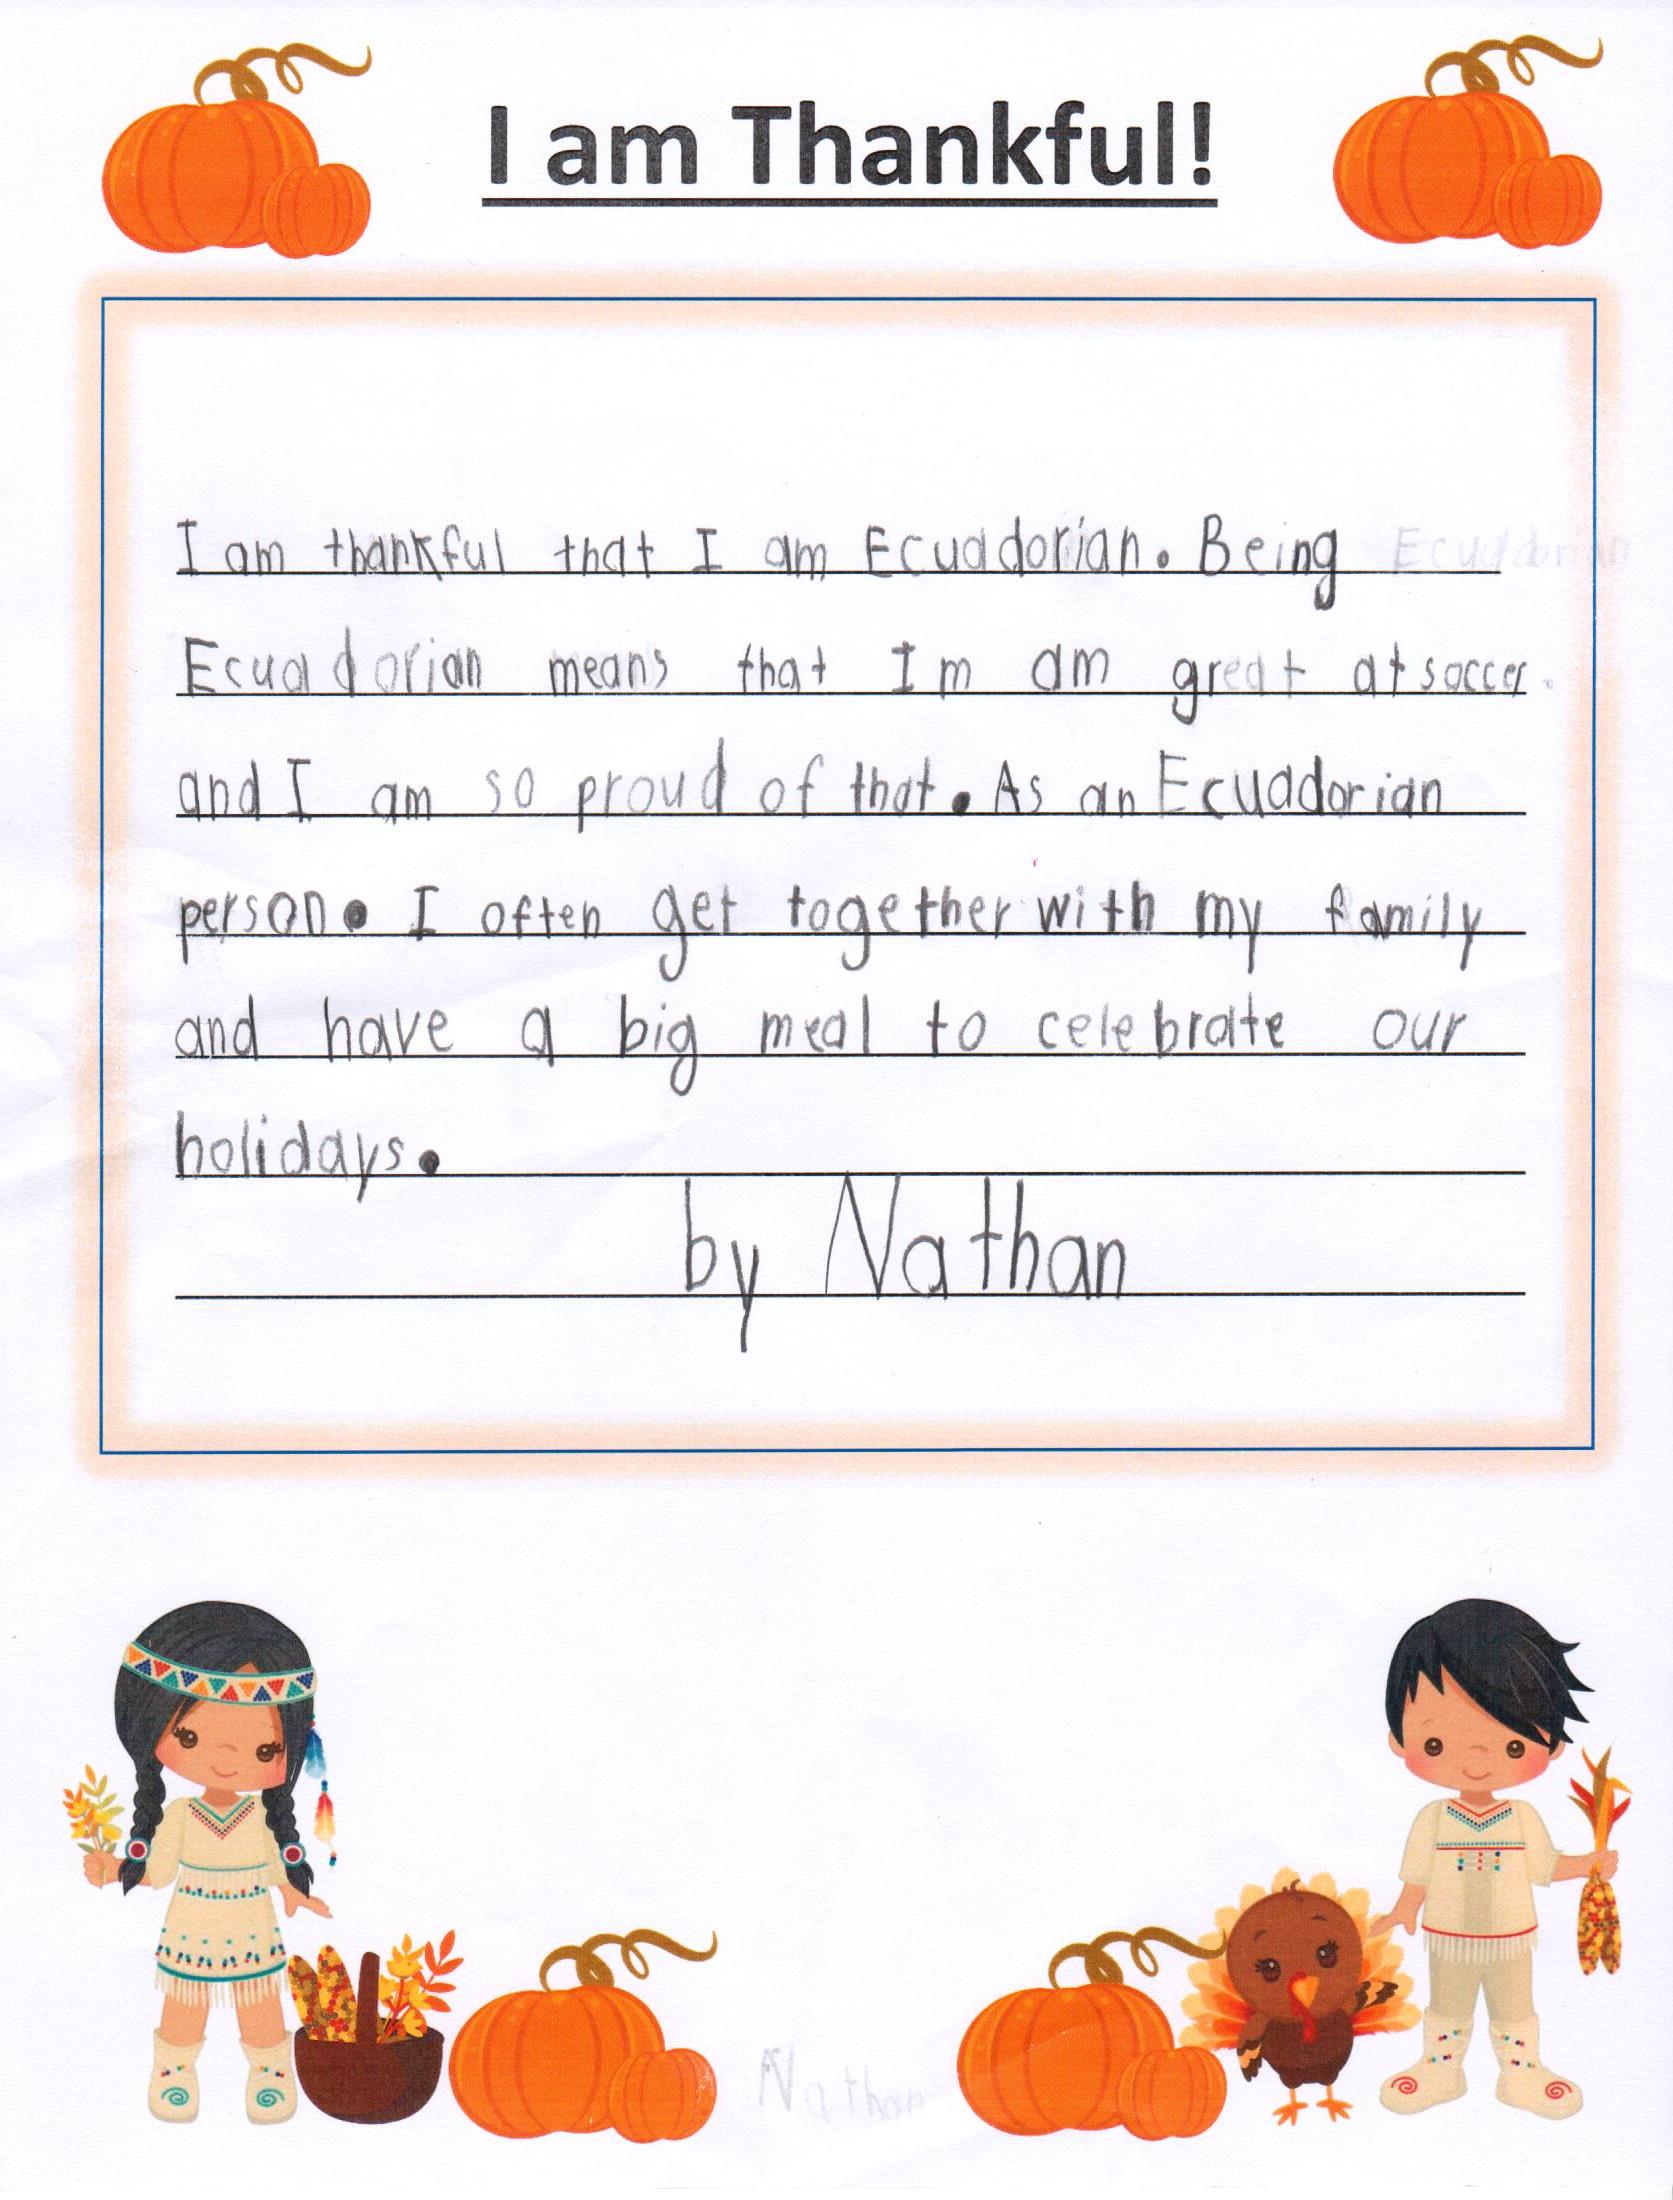 I am Thankful!
I am thankful that I am Ecuadorian. Being Ecuadorian
Ecuadorian means that Im am great at soccer.
and I am so proud of that. As an Ecuadorian
person. I often get together with my family
and have a big meal to celebrate our
holidays.
by Nathan
Nathan